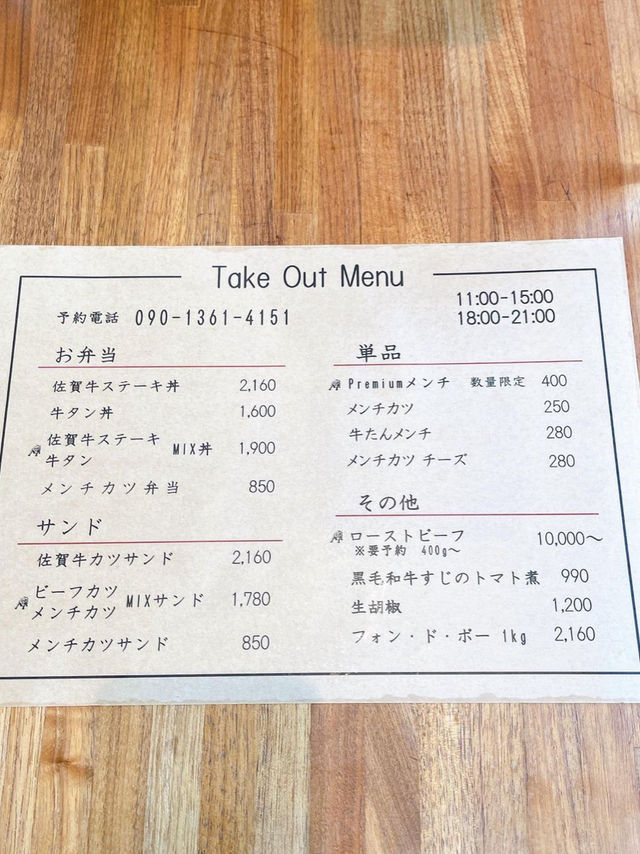 Take Out Menu
予約電話 090-1361-4151
11:00-15:00
18:00-21:00
お弁当
佐賀牛ステーキ丼 2,160
牛タン丼 1,600
佐賀牛ステーキ
牛タン MIX丼 1,900
メンチカツ弁当 850
サンド
佐賀牛カツサンド 2,160
ビーフカツ
メンチカツ MIXサンド 1,780
メンチカツサンド 850
単品
Premiumメンチ 数量限定 400
メンチカツ 250
牛たんメンチ 280
メンチカツ チーズ 280
その他
ローストビーフ 10,000〜
※要予約 400g〜
黒毛和牛すじのトマト煮 990
生胡椒 1,200
フォン・ド・ボー 1kg 2,160